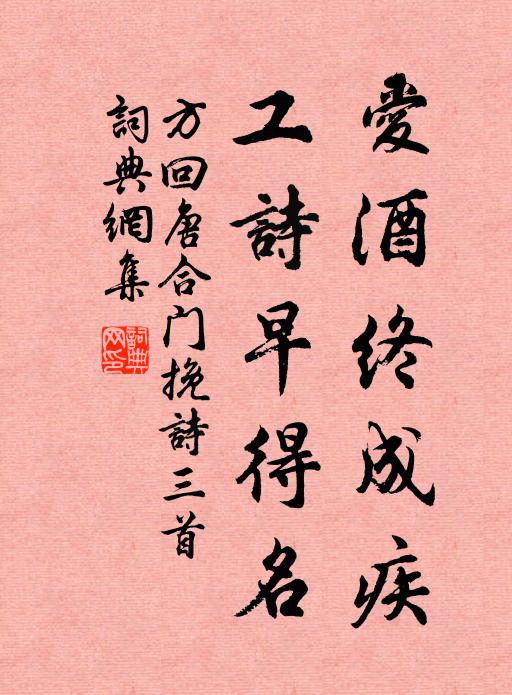 愛酒终成疾
工詩早得名
方回唐合门挽詩三首
詞典網集
詞典网印